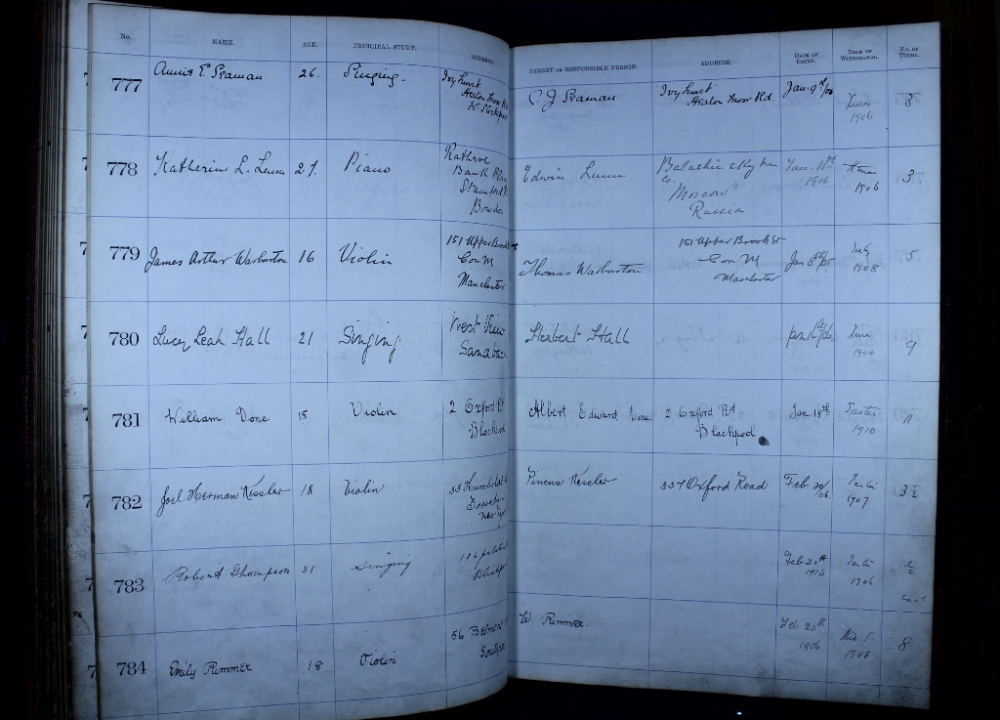 No. NAME. AGE. PRINCIPAL STUDY. ADDRESS. PARENT OR RESPONSIBLE PERSON. ADDRESS. DATE OF ENTRY. DATE OF WITHDRAWAL. NO. OF TERMS.
777 Annie E. Seaman 26. Singing. Ivyhurst C. J. Seaman Ivyhurst Jan. 9th/06 Xmas 3
Heaton Moor Rd Heaton Moor Rd 1906
Nr Stockport
778 Katherine L. 27. Piano Bank Edwin Jan. 1906 Xmas 1906 3
Stamford Moscow
Bowdon Russia
779 James Arthur Warburton 16 Violin 151 Upper Brook St Thomas Warburton 151 Upper Brook St Jan 8th July 1908 5
Con M Con M
Manchester Manchester
780 Lucy Leah Hall 21 Singing West View Herbert Hall 9
Sandbach
781 William Done 15 Violin 2 Oxford Rd Albert Edward Done 2 Oxford Rd Jan 18th Easter 11
Blackpool Blackpool 1910
782 Joel Herman Kessler 18 Violin Pineus Kessler 337 Oxford Road Feb 20/06 Easter 3½
New York 1907
783 Robert Thompson 31 Singing Feb 20th Easter ½
1906 1906
784 Emily Rimmer 18 Violin 56 W. Rimmer. Feb. 20th 8
Southport 1906 1908